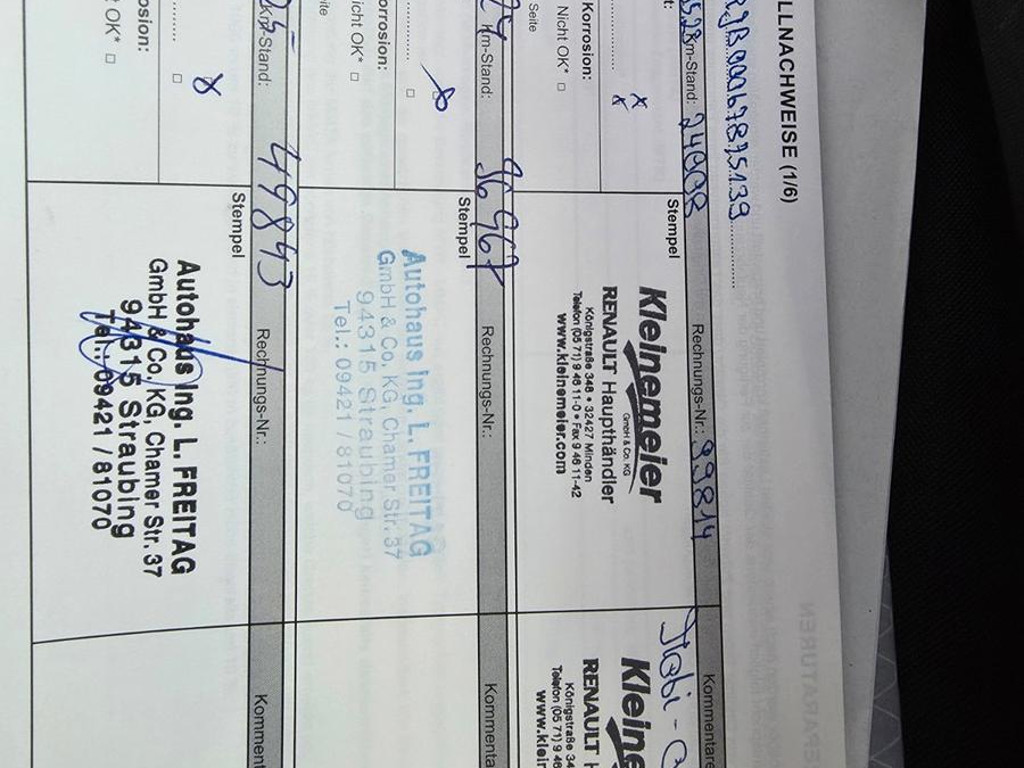 LLNACHWEISE (1/6)
Km-Stand: Rechnungs-Nr.: 99814 Kommentare
Korrosion:
Nicht OK* □
Seite
Stempel
Kleinemeier
GmbH & Co. KG
RENAULT Haupthändler
Königstraße 348 • 32427 Minden
Telefon (05 71) 9 46 11-0 • Fax 9 46 11-42
www.kleinemeier.com
Kleine
RENAULT H
Königstraße 34
Telefon (05 71) 9 46
www.klein
Km-Stand: 36967 Rechnungs-Nr.: Kommenta
orrosion:
icht OK* □
Stempel
Autohaus Ing. L. FREITAG
GmbH & Co. KG, Chamer Str. 37
94315 Straubing
Tel.: 09421 / 81070
Stand: 49843 Rechnungs-Nr.: Komment
osion:
OK* □
Stempel
Autohaus Ing. L. FREITAG
GmbH & Co. KG, Chamer Str. 37
94315 Straubing
Tel.: 09421 / 81070